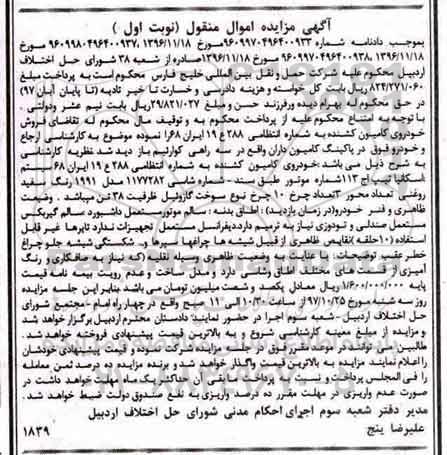 آگهی مزایده اموال منقول (نوبت اول)
بموجب دادنامه شماره ۹۶۰۹۹۷۰۴۹۶۴۰۰۹۳۳ مورخ ۱۳۹۶/۱۱/۱۸، ۹۶۰۹۹۸۰۴۹۶۴۰۰۹۳۷ مورخ
۱۳۹۶/۱۱/۱۸، ۹۶۰۹۹۷۰۴۹۶۴۰۰۹۳۸ مورخ ۱۳۹۶/۱۱/۱۸ صادره از شعبه ۳۸ شورای حل اختلاف
اردبیل محکوم علیه شرکت حمل و نقل بین المللی خلیج فارس محکوم است به پرداخت مبلغ
۸۲۴/۲۷۱/۰۶۰ ریال بابت کل خواسته و هزینه دادرسی و خسارت تا خیر تادیه (تا پایان آبان ۹۷)
در حق محکوم له بهرام دیده ورفرزند حسن و مبلغ ۲۹/۸۲۱/۰۲۷ ریال بابت نیم عشر ودولتی .
با توجه به امتناع محکوم علیه از پرداخت محکوم به و توقیف مال محکوم له تقاضای فروش
خودروی کامیون کشنده به شماره انتظامی ۲۸۸ ع ۱۹ ایران ۶۸ را نموده موضوع به کارشناسی ارجاع
و خودرو فوق در پاکینگ کامیون داران واقع در سه راهی کوارتیم باز دید شد نظریه کارشناسی
به شرح ذیل می باشد :خودروی کامیون کشنده به شماره انتظامی ۲۸۸ ع ۱۹ ایران ۶۸ سیستم
:اسکانیا تیپ اچ ۱۱۳ شماره موتور طبق سند- شماره شاسی ۱۱۷۷۲۸۲ مدل ۱۹۹۱ رنگ سفید
روغنی تعداد محور ۳ تعداد چرخ ۱۰ چرخ نوع سوخت گازوئیل ظرفیت ۳۸ تن میباشد . وضعیت
ظاهری و فنی خودرو(در زمان بازدید) : اطاق بدنه : سالم موتورمستعمل داشبورد سالم گیربکس
مستعمل صندلی و تودوزی نیاز به ترمیم دارد.دیفرانسل مستعمل تجهیزات ندارد تایرها غیر قابل
استفاده (۱۰حلقه ).نقایص ظاهری از قبیل شیشه ها چراغها، سپرها و.. شکستگی شیشه جلو چراغ
خطر عقب توضیحات : با عنایت به وضعیت ظاهری وسیله نقلیه (که نیاز به صافکاری و رنگ
آمیزی از قسمت های مختلف اطاق وشاسی دارد و مدل ساخت و عدم رویت بیمه نامه قیمت
پایه ۱/۶۰۰/۰۰۰/۰۰۰ ریال معادل یکصد و شصت میلیون تومان می باشد بنابر این جلسه مزایده
روز سه شنبه مورخ ۹۷/۱۰/۲۵ از ساعت ۱۰/۳۰ الی ۱۱ صبح واقع در چهار راه امام - مجتمع شورای
حل اختلاف اردبیل - شعبه سوم اجرا در حضور نماینده دادستان محترم اردبیل برگزار خواهد شد
و مزایده از مبلغ معینه کارشناسی شروع و به بالاترین قیمت پیشنهادی فروخته خواهد شد.
طالبین می توانند در موعد مقرر فوق در جلسه مزایده شرکت نموده و قیمت پیشنهادی خودشان
را اعلام نمایند مزایده به بالاترین قیمت واگذار خواهد شد و برنده مزایده ده درصد ثمن معامله
را فی المجلس پرداخت و نسبت به پرداخت مابقی آن حداکثر یک ماه مهلت خواهد داشت در
صورت عدم واریزی در مهلت مقرر ده درصد واریزی به نفع صندوق دولت ضبط خواهد شد.
مدیر دفتر شعبه سوم اجرای احکام مدنی شورای حل اختلاف اردبیل
علیرضا پنج
۱۸۳۹